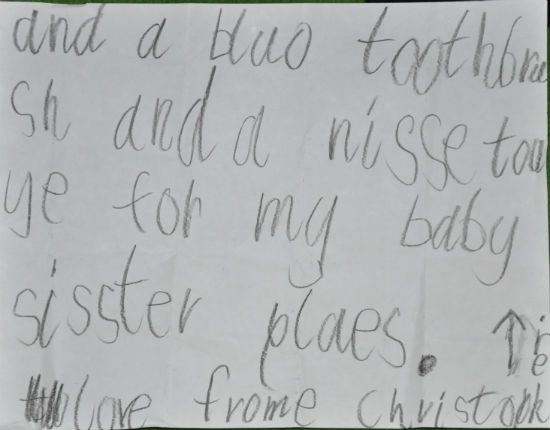 and a bluo toothbru
sh and a nisse tou
ye for my baby
sisster plaes.
love frome christo